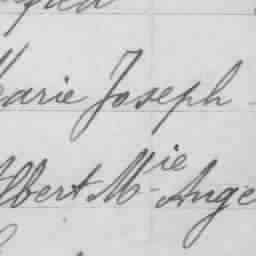 Marie Joseph
Albert M.ie Ange